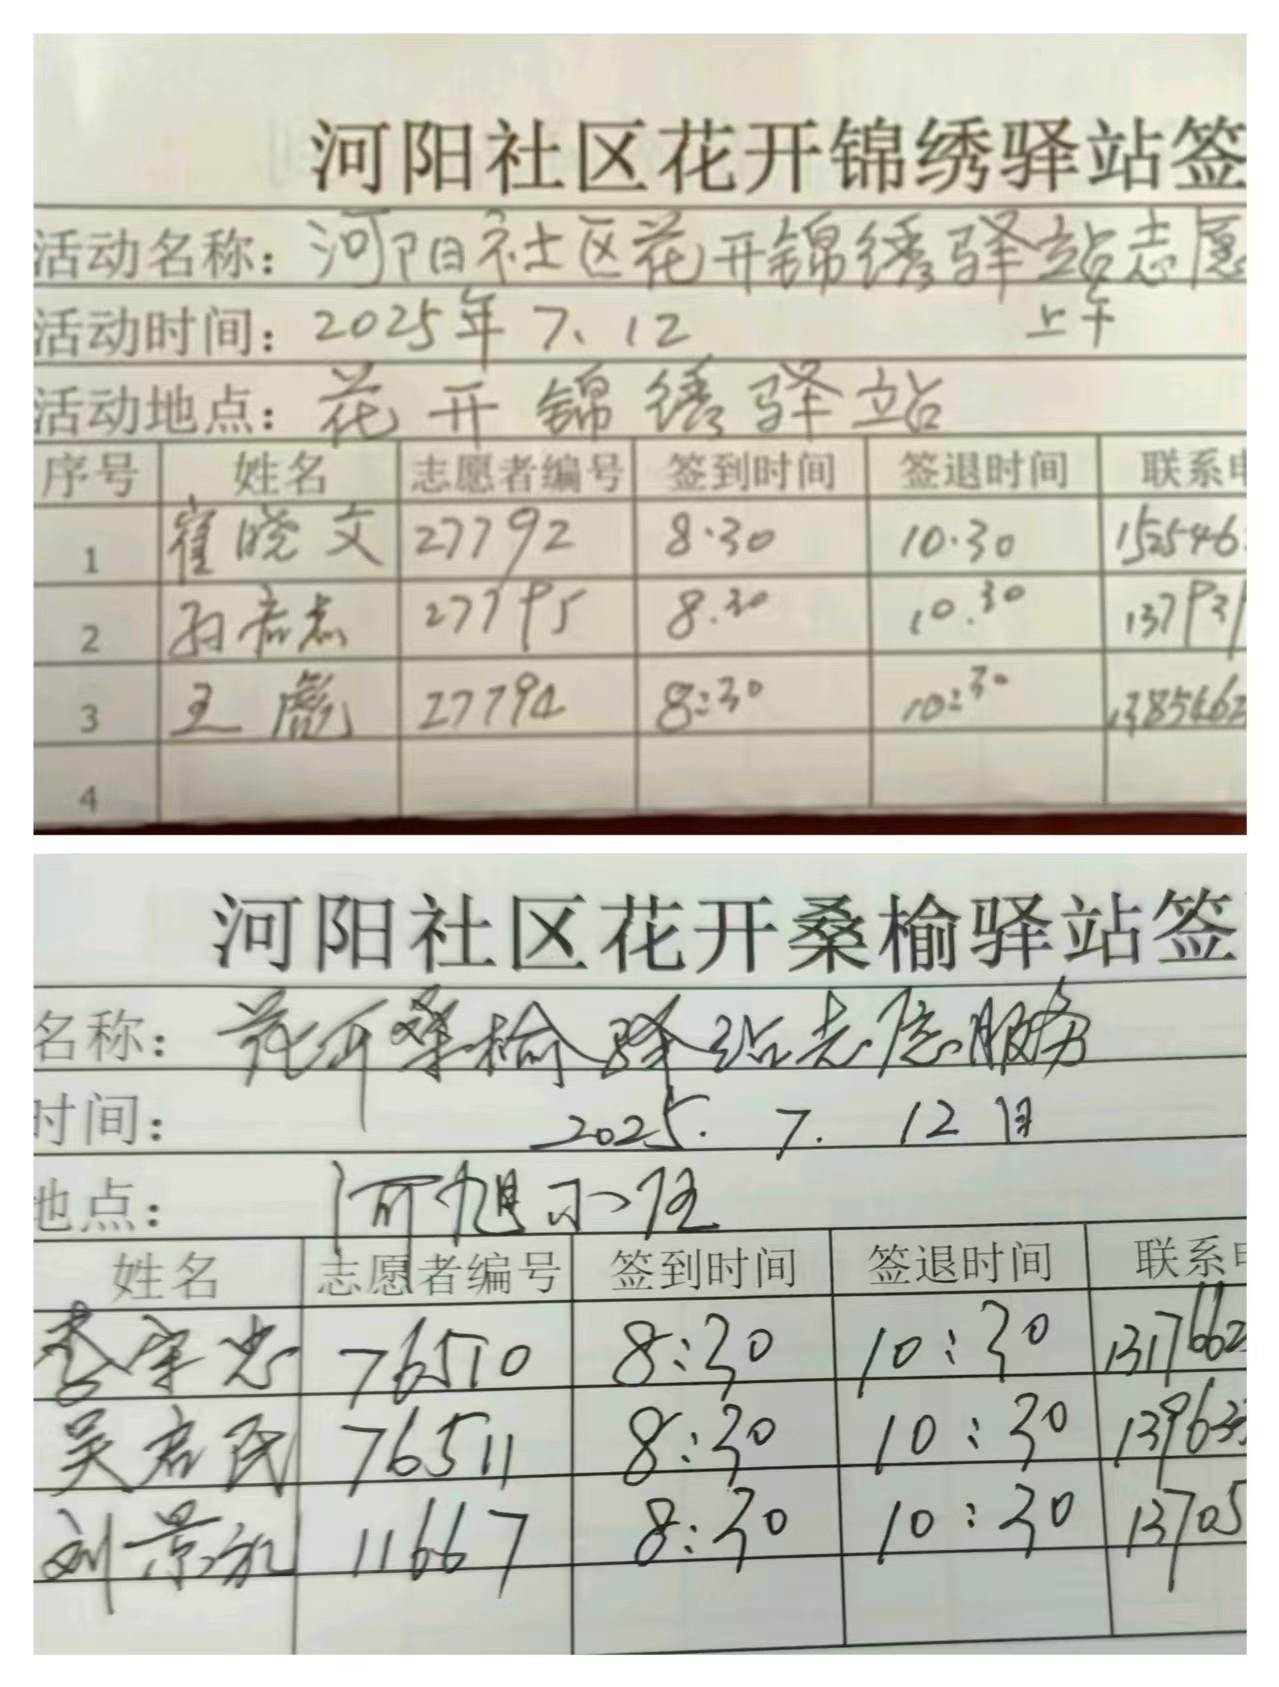 河阳社区花开锦绣驿站签
活动名称：河阳社区花开锦绣驿站志愿
活动时间：2025年7、12 上午
活动地点：花开锦绣驿站
序号 姓名 志愿者编号 签到时间 签退时间 联系电
1 崔晓文 27792 8·30 10·30 152546
2 孙志 27795 8.30 10.30 137931
3 王彪 27794 8:30 10:30 1385462
4
河阳社区花开桑榆驿站签
名称：花开桑榆驿站志愿服务
时间：2025.7.12日
地点：河旭小区
姓名 志愿者编号 签到时间 签退时间 联系电
李宗忠 76510 8:30 10:30 1317662
吴君民 76511 8:30 10:30 139635
刘景礼 11667 8:30 10:30 13705